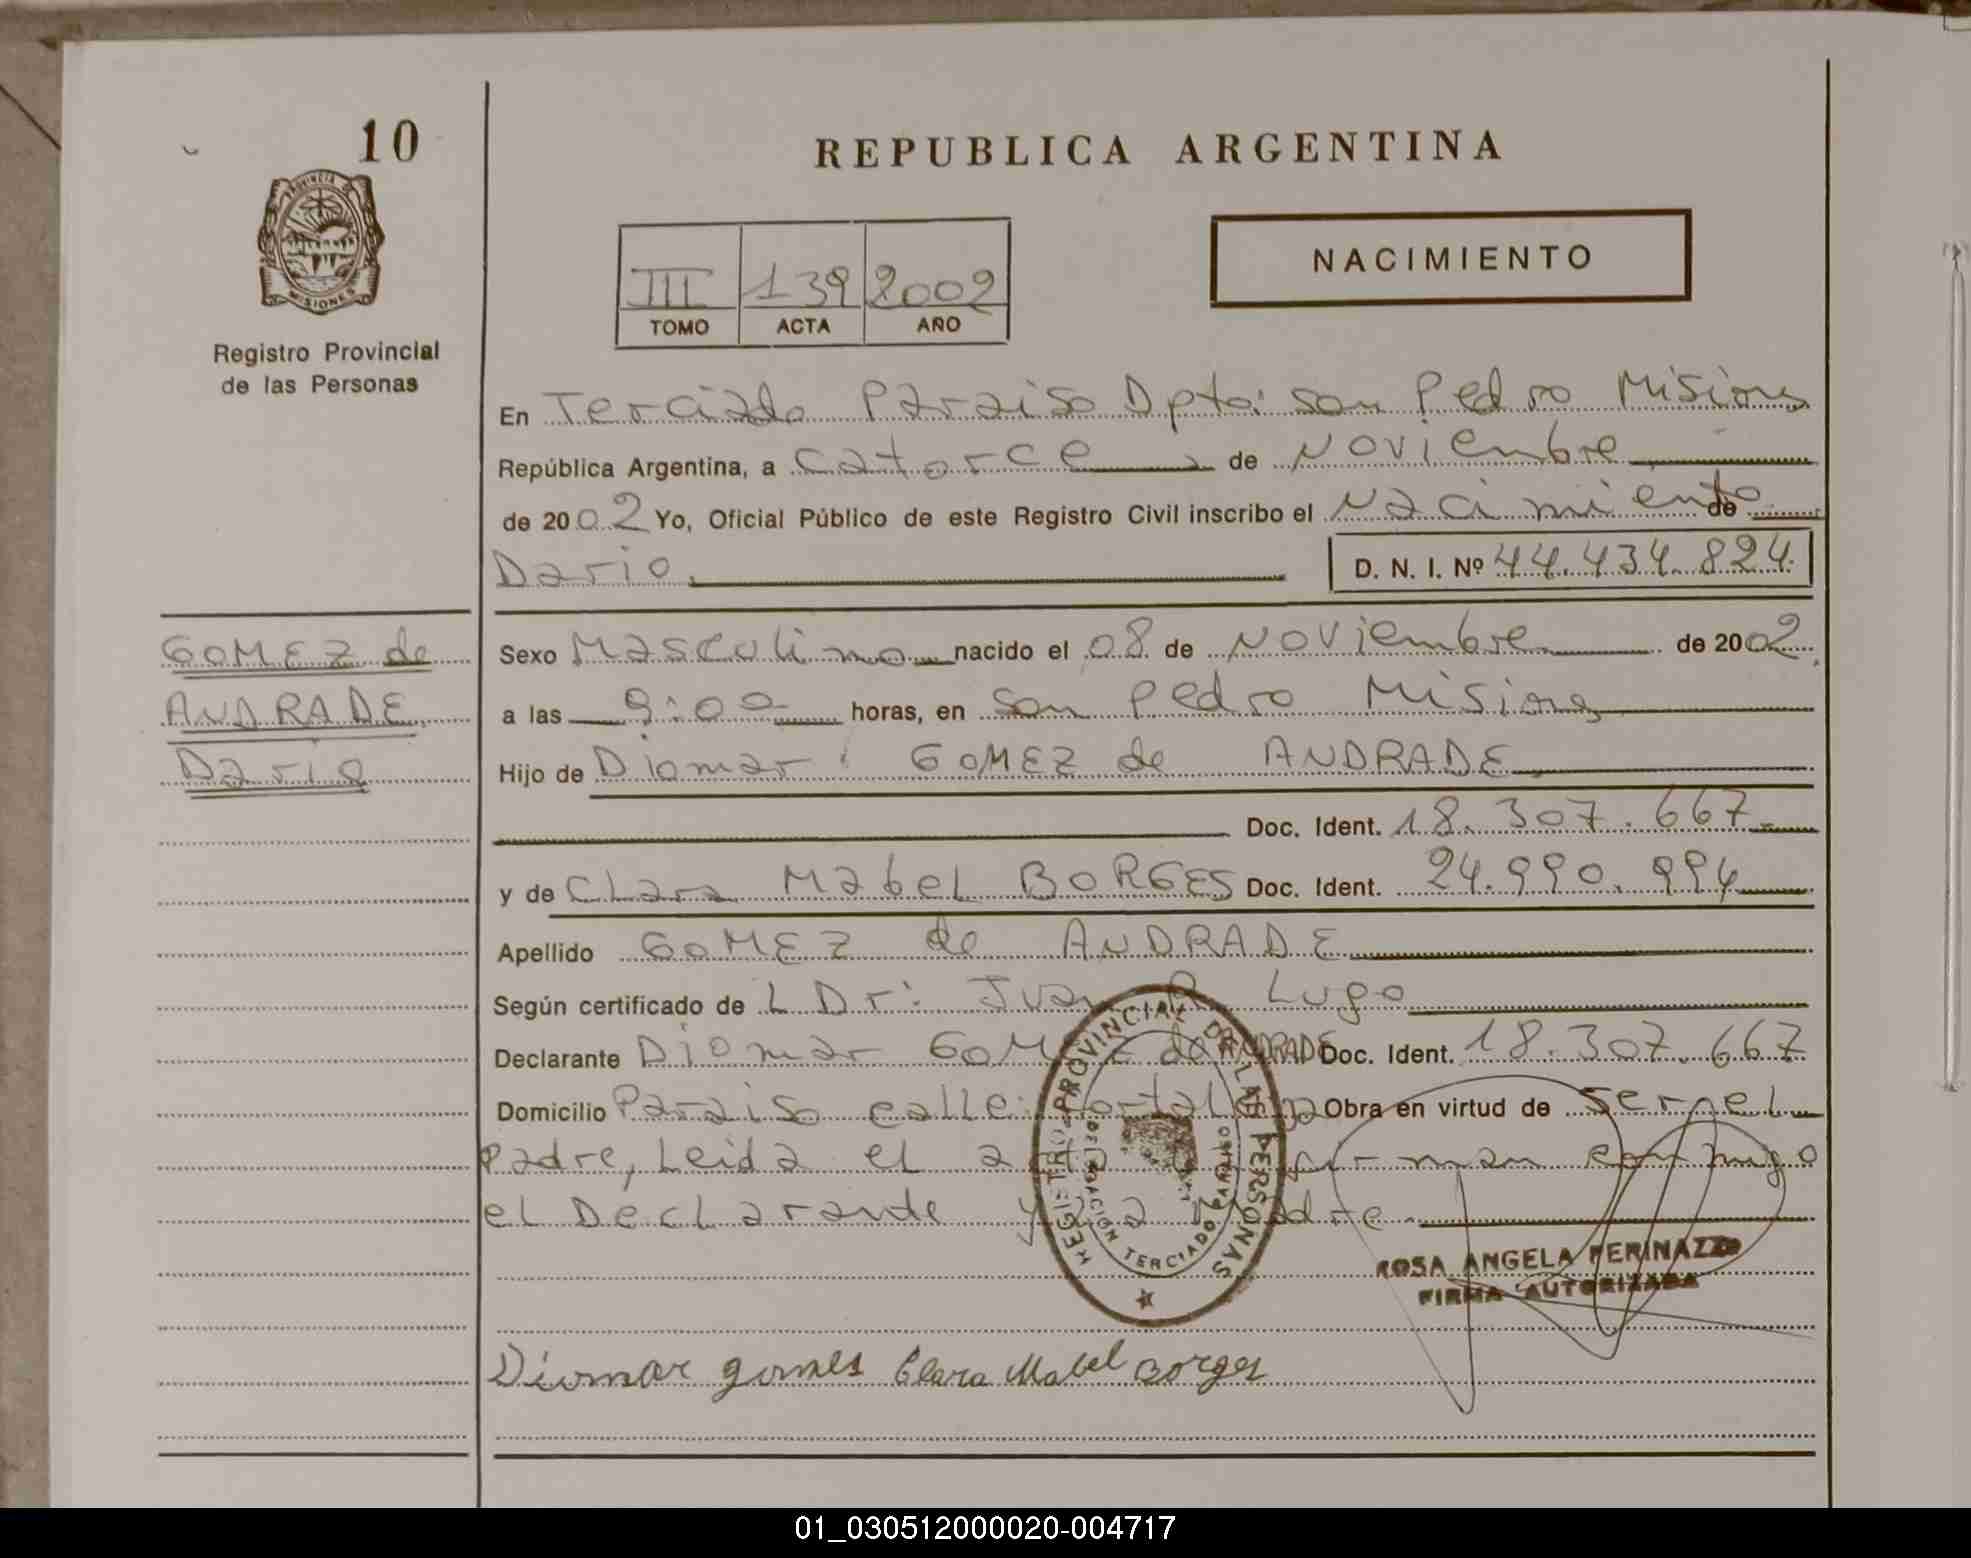 10
REPUBLICA ARGENTINA
PROVINCIA DE
MISIONES
Registro Provincial
de las Personas
III 139 2002
TOMO ACTA AÑO
NACIMIENTO
En Terciado Paraiso Dpto: san Pedro Misiones
República Argentina, a catorce de Noviembre
de 2002 Yo, Oficial Público de este Registro Civil inscribo el Nacimiento de
Dario D. N. I. Nº 44.434.824
GOMEZ de
ANDRADE
Dario
Sexo Masculino nacido el 08 de Noviembre de 2002
a las 9:00 horas, en san Pedro Misiones
Hijo de Diomar GOMEZ de ANDRADE
Doc. Ident. 18.307.667
y de Clara Mabel BORGES Doc. Ident. 24.990.994
Apellido GOMEZ de ANDRADE
Según certificado de L Dr: Juan R. Lugo
Declarante Diomar GOMEZ de ANDRADE Doc. Ident. 18.307.667
Domicilio Paraiso calle: Obra en virtud de ser el
Padre, Leida el acta firman conmigo
el Declarante y la Madre
REGISTRO PROVINCIAL DE LAS PERSONAS
DELEGACION TERCIADO
ROSA ANGELA PERINAZZO
FIRMA AUTORIZADA
Diomar gomes Clara Mabel Borges
01_030512000020-004717